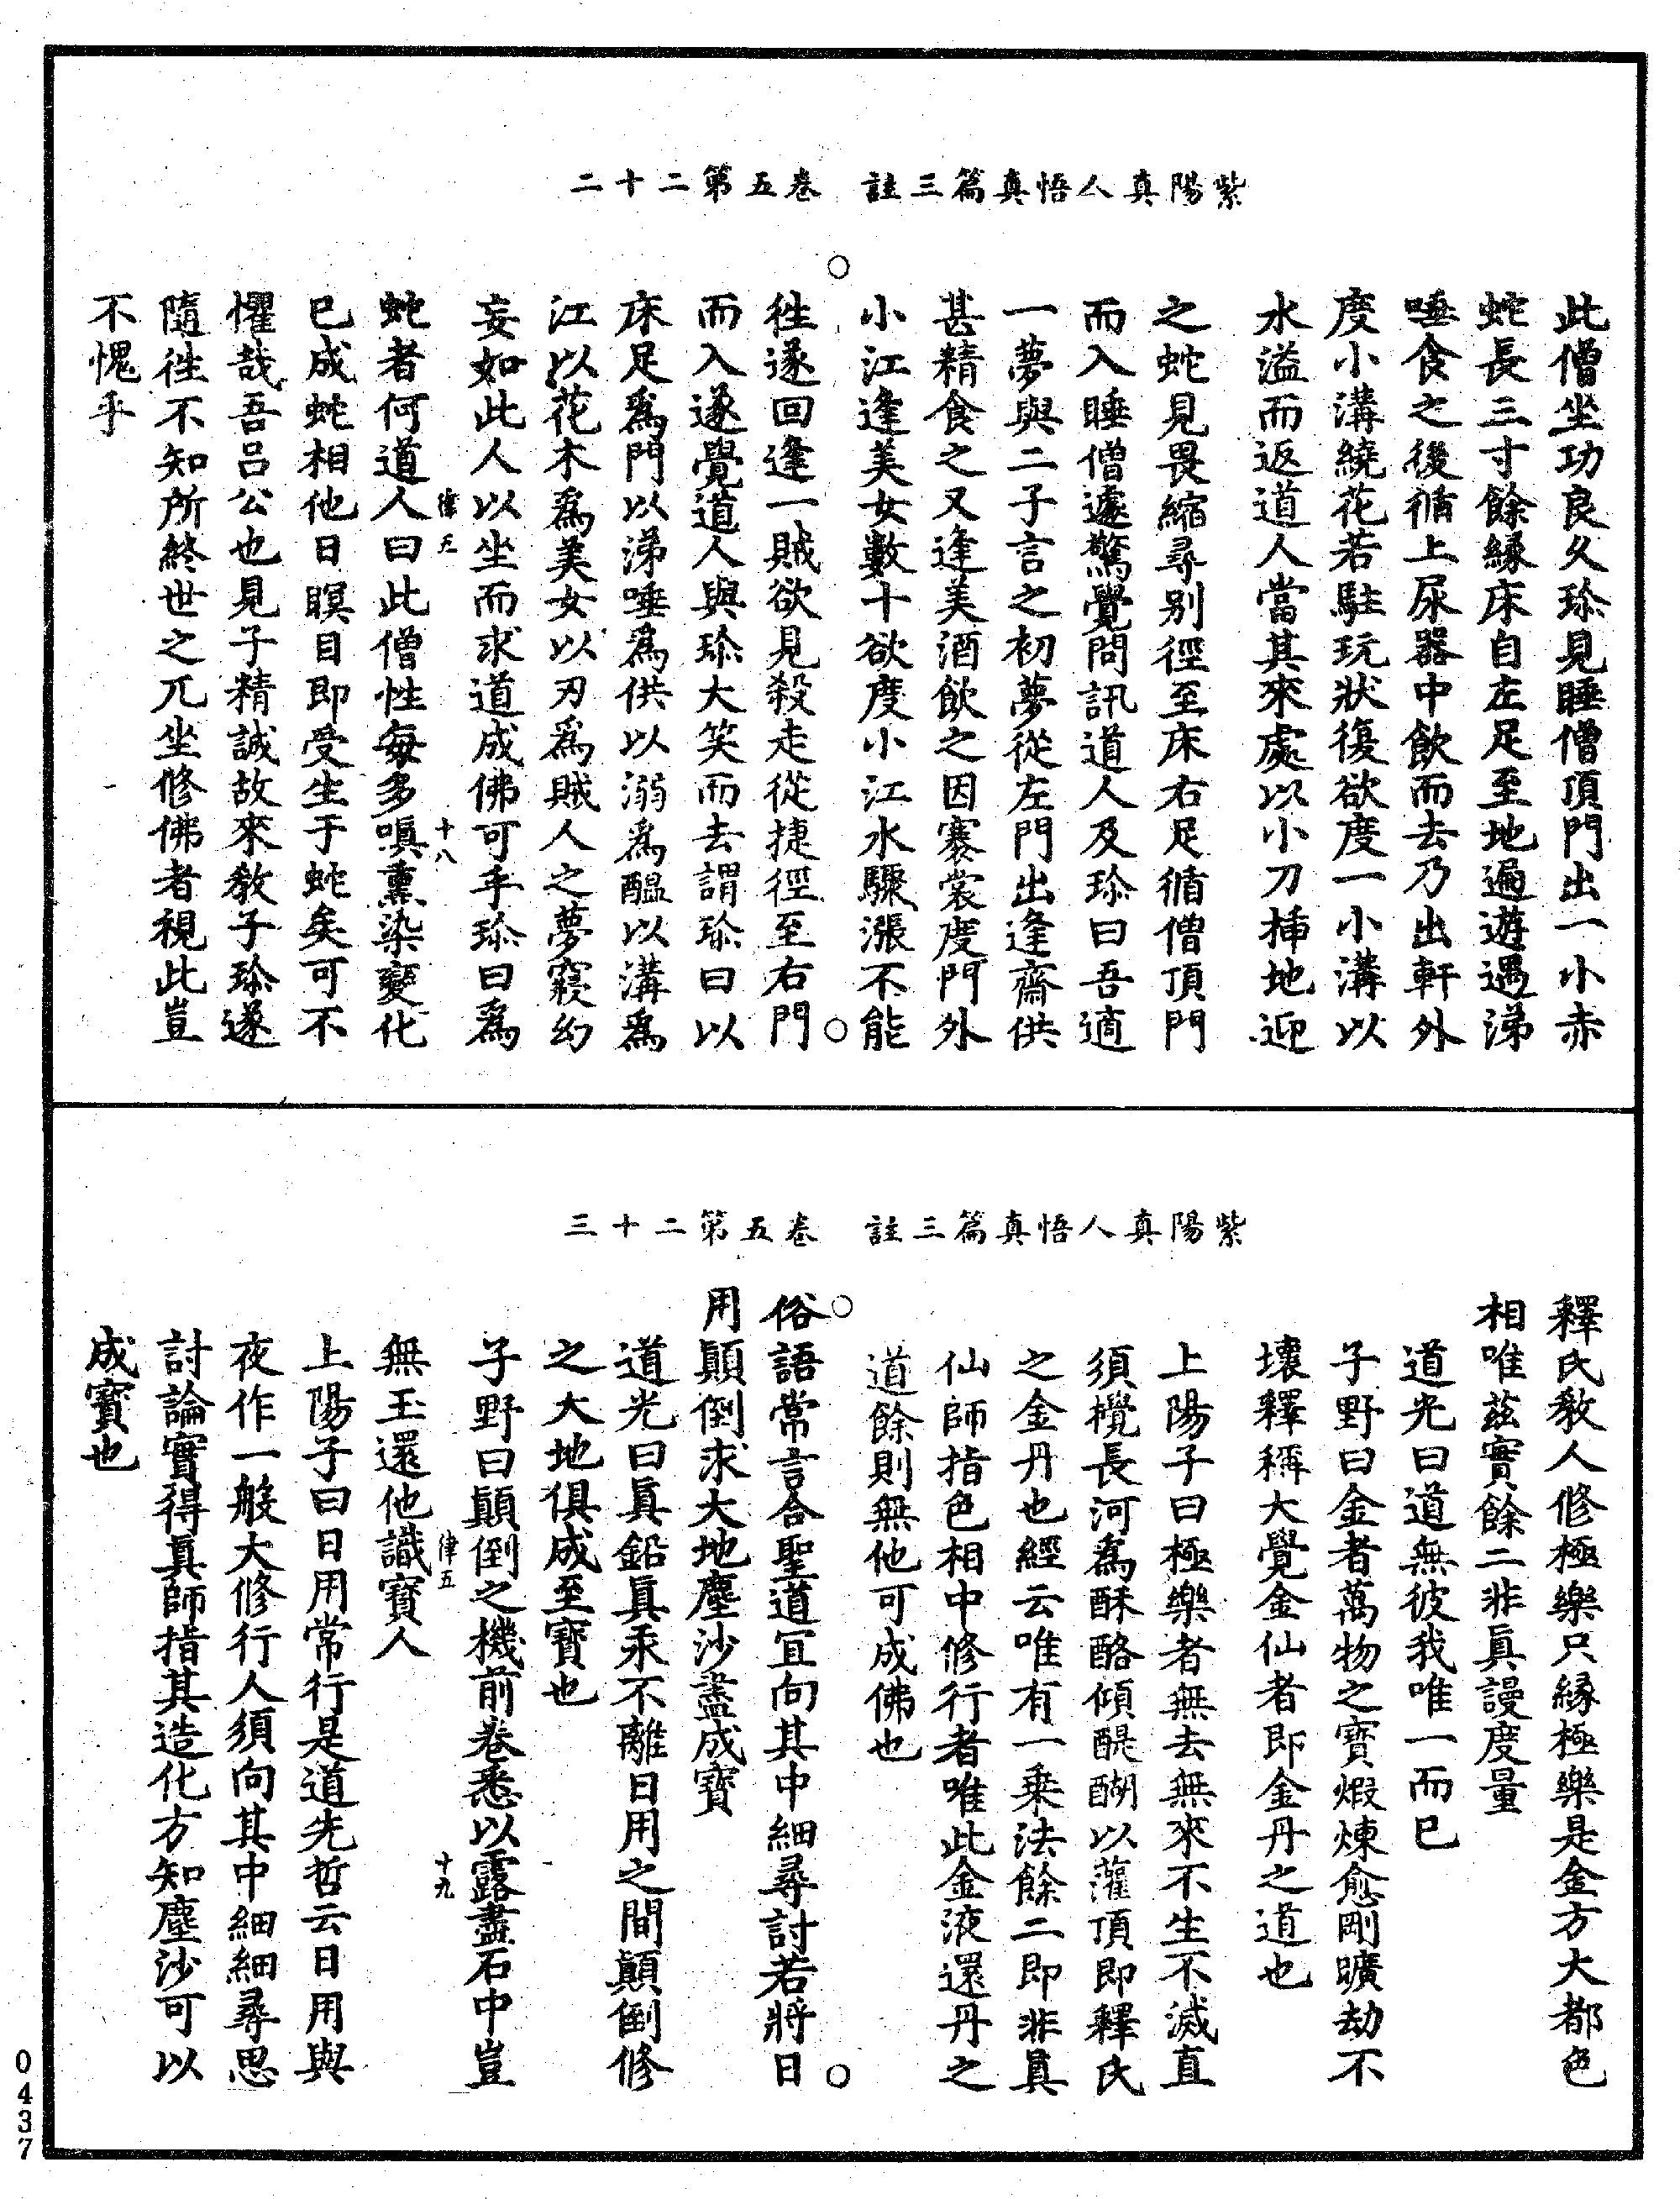 紫陽真人悟真篇三註　卷五第二十二
此僧坐功良久珎見睡僧頂門出一小赤
蛇長三寸餘緣床自左足至地遍遊遇涕
唾食之後循上尿器中飲而去乃出軒外
度小溝繞花若駐玩狀復欲度一小溝以
水溢而返道人當其來處以小刀插地迎
之蛇見畏縮尋別徑至床右足循僧頂門
而入睡僧遽驚覺問訊道人及珎曰吾適
一夢與二子言之初夢從左門出逢齋供
甚精食之又逢美酒飲之因褰裳度門外
小江逢美女數十欲度小江水驟漲不能
徃遂回逢一賊欲見殺走從捷徑至右門
而入遂覺道人與珎大笑而去謂珎曰以
床足爲門以涕唾爲供以溺爲醖以溝爲
江以花木爲美女以刃爲賊人之夢寢幻
妄如此人以坐而求道成佛可乎珎曰爲
蛇者何道人曰此僧性每多嗔熏染變化
已成蛇相他日瞑目即受生于蛇矣可不
懼哉吾呂公也見子精誠故來教子珎遂
隨徃不知所終世之兀坐修佛者視此豈
不愧乎
律五
十八
紫陽真人悟真篇三註　卷五第二十三
釋氏教人修極樂只緣極樂是金方大都色
相唯茲實餘二非眞謾度量
道光曰道無彼我唯一而已
子野曰金者萬物之寶煆煉愈剛曠劫不
壞釋稱大覺金仙者即金丹之道也
上陽子曰極樂者無去無來不生不滅直
須攪長河爲酥酪傾醍醐以灌頂即釋氏
之金丹也經云唯有一乘法餘二即非眞
仙師指色相中修行者唯此金液還丹之
道餘則無他可成佛也
俗語常言合聖道宜向其中細尋討若將日
用顛倒求大地塵沙盡成寶
道光曰眞鉛眞汞不離日用之間顛倒修
之大地俱成至寶也
子野曰顛倒之機前卷悉以露盡石中豈
無玉還他識寶人
上陽子曰日用常行是道先哲云日用與
夜作一般大修行人須向其中細細尋思
討論實得眞師指其造化方知塵沙可以
成寶也
律五
十九
0437